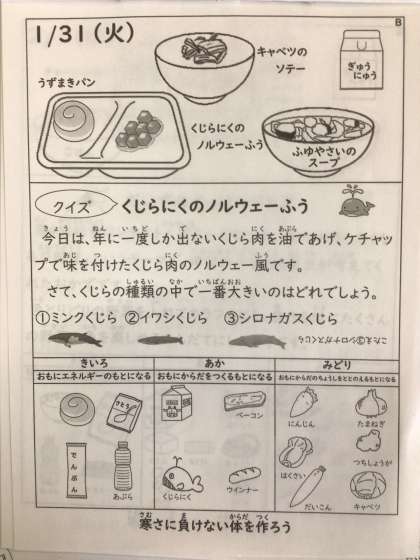 B
1/31(火)
キャベツの
ソテー
ぎゅう
にゅう
うずまきパン
くじらにくの
ノルウェーふう
ふゆやさいの
スープ
クイズ くじらにくのノルウェーふう
今日は、年に一度しか出ないくじら肉を油であげ、ケチャッ
プで味を付けたくじら肉のノルウェー風です。
さて、くじらの種類の中で一番大きいのはどれでしょう。
①ミンクくじら ②イワシくじら ③シロナガスくじら
こたえ③シロナガスくじら
きいろ あか みどり
おもにエネルギーのもとになる おもにからだをつくるもとになる おもにからだのちょうしをととのえるもとになる
さとう
ベーコン
にんじん たまねぎ
でんぷん
はくさい つちしょうが
あぶら くじらにく ウインナー
だいこん キャベツ
寒さに負けない体を作ろう